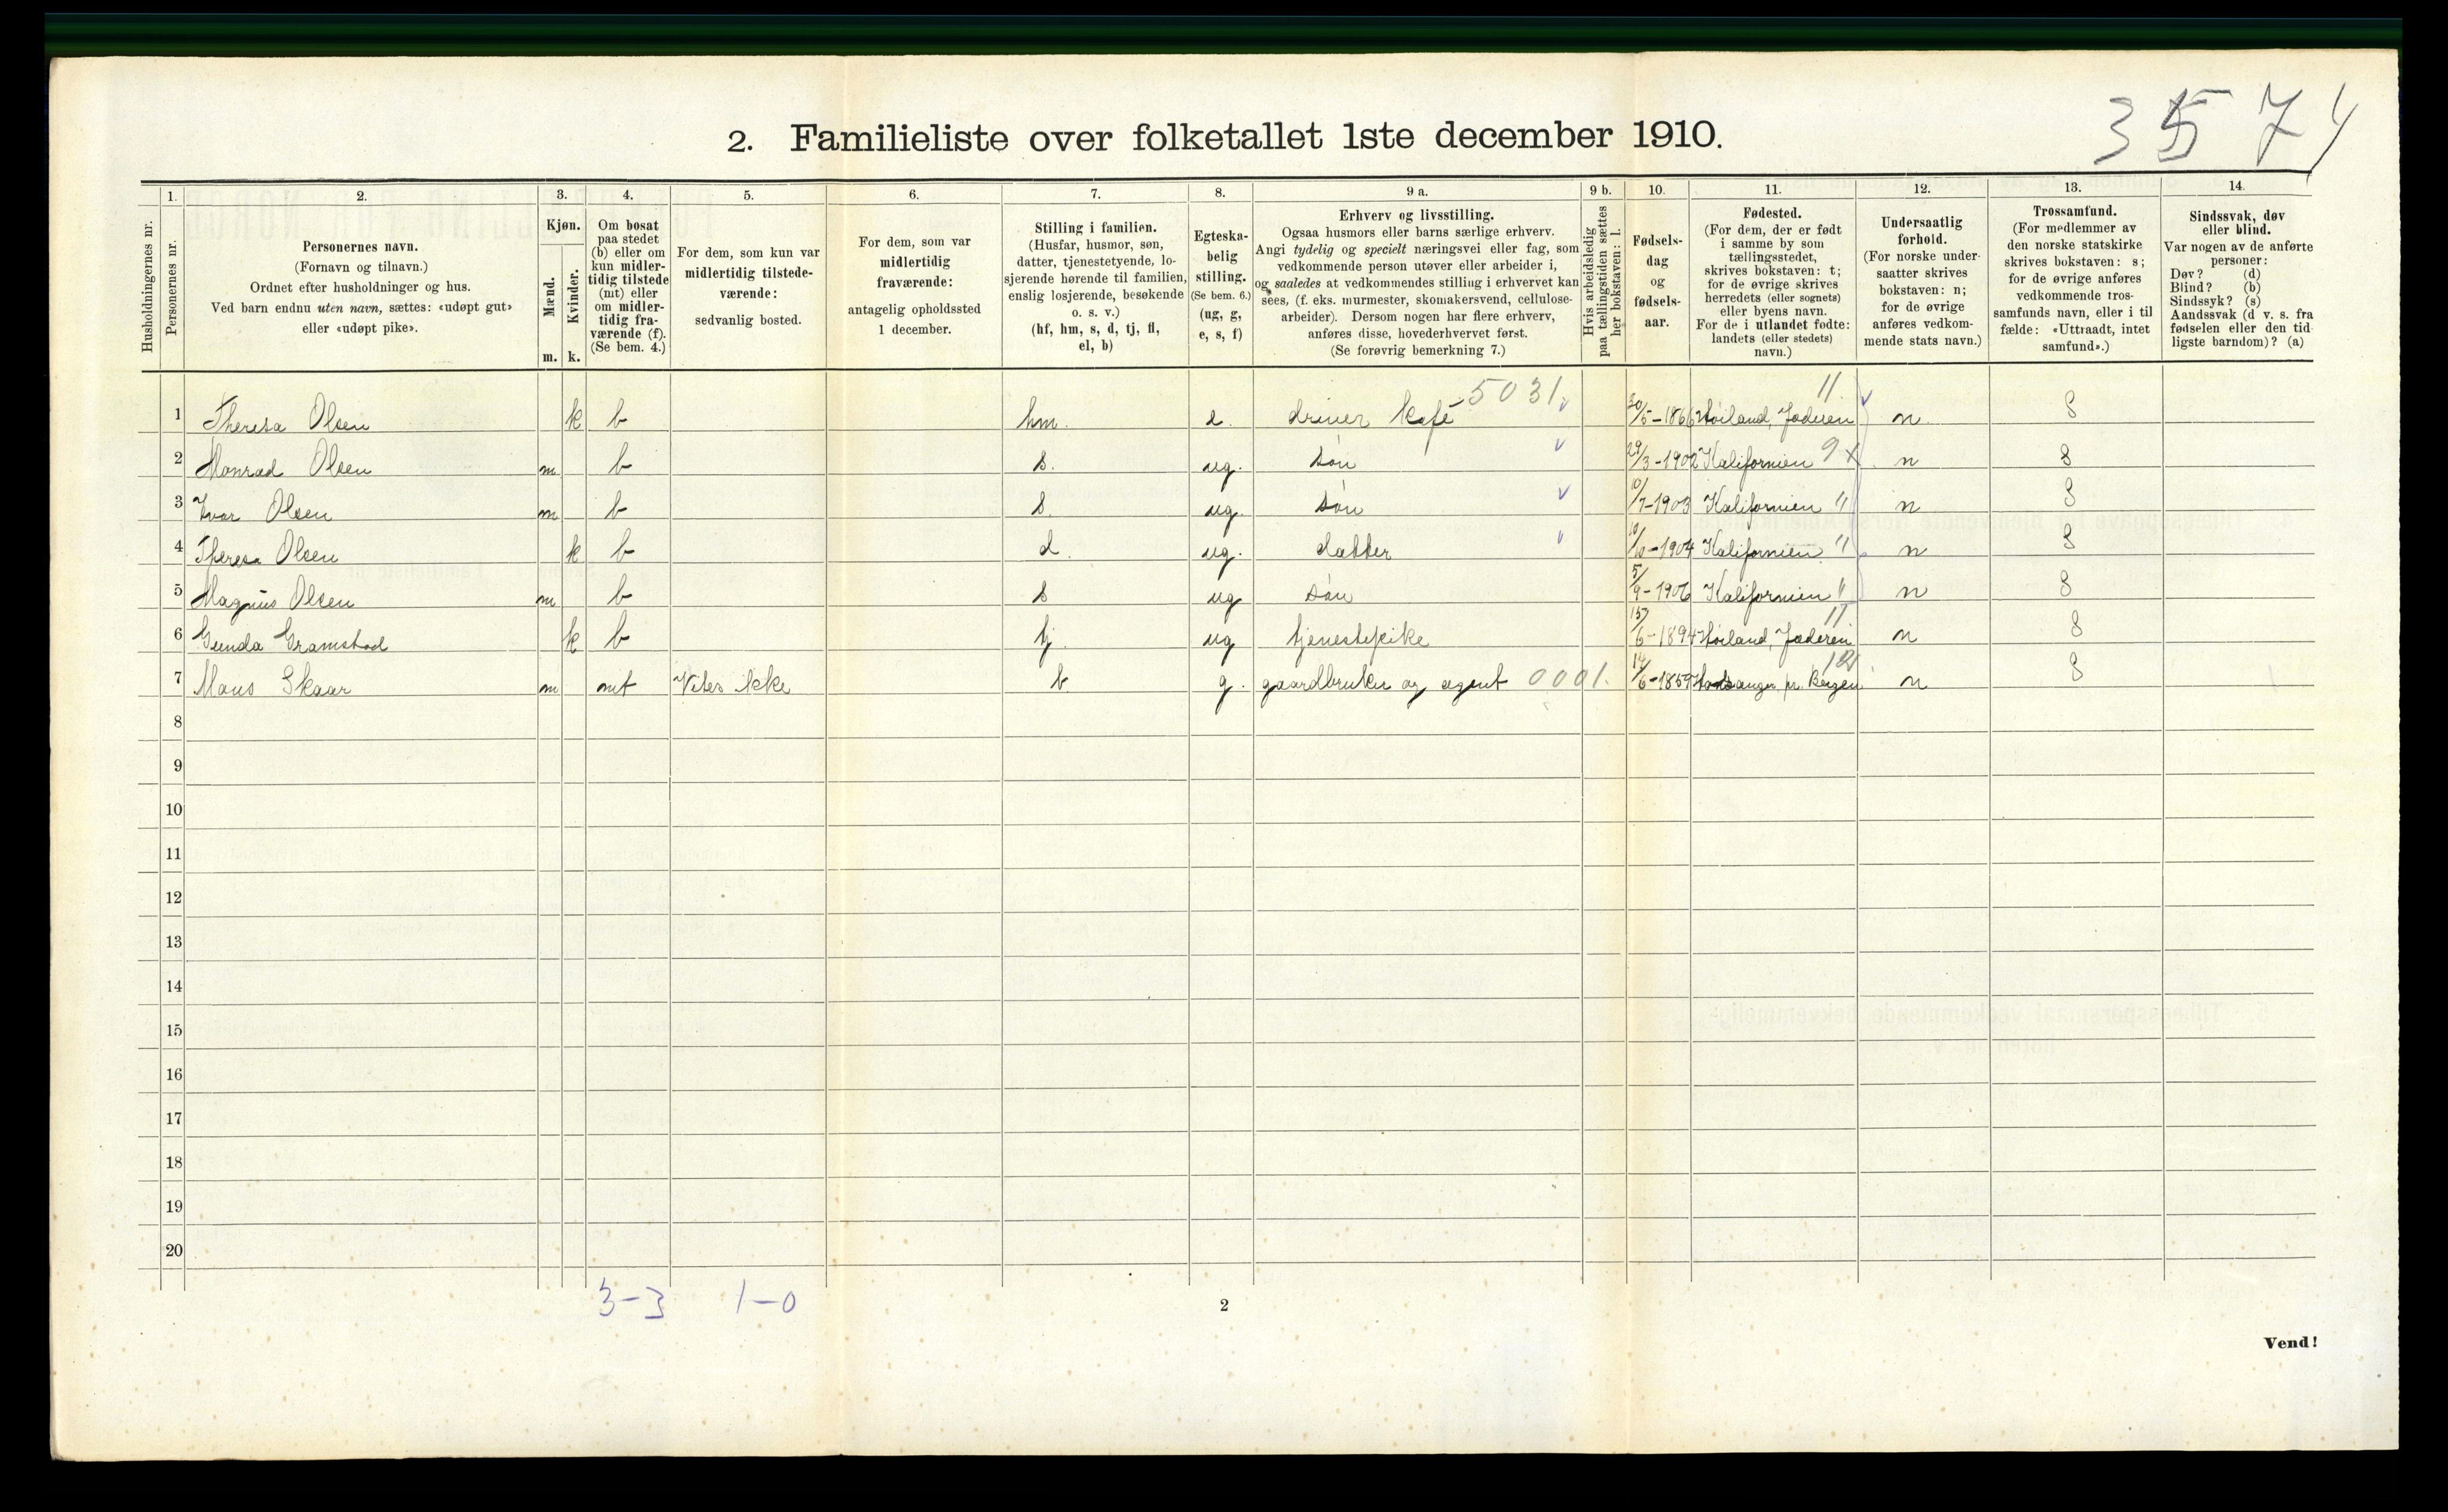 3574
2. Familieliste over folketallet 1ste december 1910.
Husholdningernes nr.
1. Personernes nr.
2. Personernes navn.
(Fornavn og tilnavn.)
Ordnet efter husholdninger og hus.
Ved barn endnu uten navn, sættes: «udøpt gut»
eller «udøpt pike».
3. Kjøn.
Mænd. m.
Kvinder. k.
4. Om bosat
paa stedet
(b) eller om
kun midler-
tidig tilstede
(mt) eller
om midler-
tidig fra-
værende (f).
(Se bem. 4.)
5. For dem, som kun var
midlertidig tilstede-
værende:
sedvanlig bosted.
6. For dem, som var
midlertidig
fraværende:
antagelig opholdssted
1 december.
7. Stilling i familien.
(Husfar, husmor, søn,
datter, tjenestetyende, lo-
sjerende hørende til familien,
enslig losjerende, besøkende
o. s. v.)
(hf, hm, s, d, tj, fl,
el, b)
8. Egteska-
belig
stilling.
(Se bem. 6.)
(ug, g,
e, s, f)
9 a. Erhverv og livsstilling.
Ogsaa husmors eller barns særlige erhverv.
Angi tydelig og specielt næringsvei eller fag, som
vedkommende person utøver eller arbeider i,
og saaledes at vedkommendes stilling i erhvervet kan
sees, (f. eks. murmester, skomakersvend, cellulose-
arbeider). Dersom nogen har flere erhverv,
anføres disse, hovederhvervet først.
(Se forøvrig bemerkning 7.)
9 b. Hvis arbeidsledig
paa tællingstiden sættes
her bokstaven: l.
10. Fødsels-
dag
og
fødsels-
aar.
11. Fødested.
(For dem, der er født
i samme by som
tællingsstedet,
skrives bokstaven: t;
for de øvrige skrives
herredets (eller sognets)
eller byens navn.
For de i utlandet fødte:
landets (eller stedets)
navn.)
12. Undersaatlig
forhold.
(For norske under-
saatter skrives
bokstaven: n;
for de øvrige
anføres vedkom-
mende stats navn.)
13. Trossamfund.
(For medlemmer av
den norske statskirke
skrives bokstaven: s;
for de øvrige anføres
vedkommende tros-
samfunds navn, eller i til
fælde: «Uttraadt, intet
samfund».)
14. Sindssvak, døv
eller blind.
Var nogen av de anførte
personer:
Døv? (d)
Blind? (b)
Sindssyk? (s)
Aandssvak (d v. s. fra
fødselen eller den tid
ligste barndom)? (a)
5031 11
1 Theresa Olsen k b hm. driver kafé 30/5-1866 Høiland, Jæderen n s
2 Monrad Olsen m b s. ug. søn 29/3-1902 Kalifornien 9 x n s
3 Ivar Olsen m b s. ug. søn 10/7-1903 Kalifornien " n s
4 Theresa Olsen k b d. ug. datter 10/10-1904 Kalifornien " n s
5 Magnus Olsen m b s ug søn 5/9-1906 Kalifornien " n s
11
6 Gunda Gramstad k b tj. ug tjenestepike 15/6-1894 Høiland, Jæderen n s
7 Mons Skaar m mt Vites ikke b g. gaardbruker og agent 0001. 14/6-1859 pr. Bergen n s
8
9
10
11
12
13
14
15
16
17
18
19
20
3-3 1-0
2
Vend!